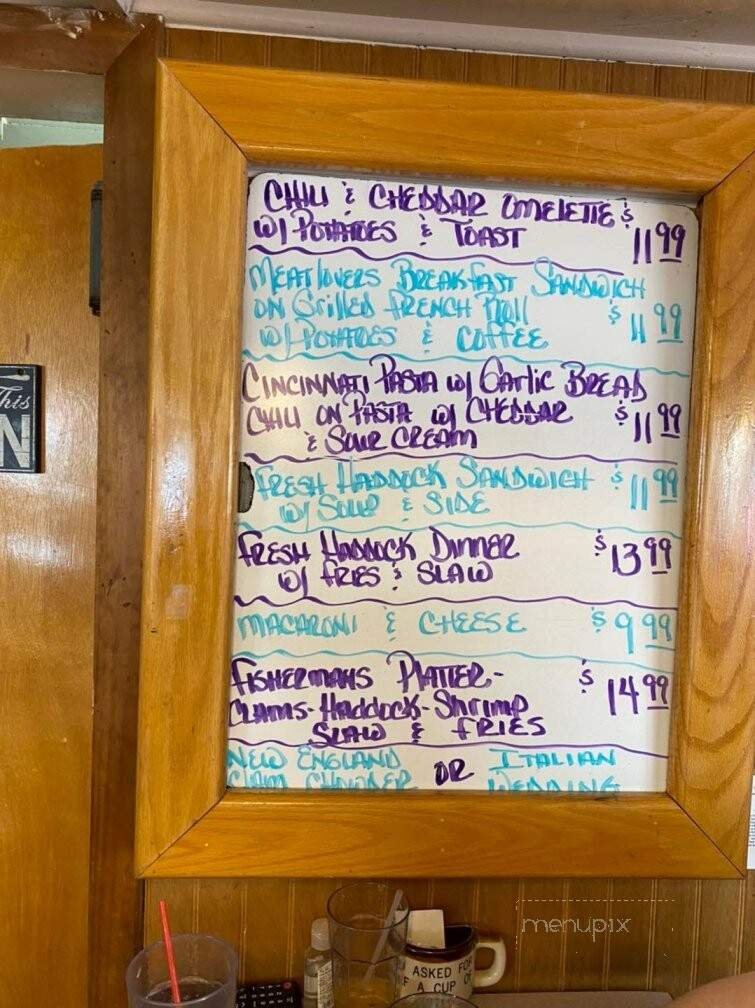 CHILI & CHEDDAR OMELETTE $11.99
W/ POTATOES & TOAST
MEATLOVERS BREAKFAST SANDWICH
ON GRILLED FRENCH ROLL $11.99
W/ POTATOES & COFFEE
CINCINNATI PASTA W/ GARLIC BREAD
CHILI ON PASTA W/ CHEDDAR $11.99
& SOUR CREAM
FRESH HADDOCK SANDWICH $11.99
W/ SOUP & SIDE
FRESH HADDOCK DINNER $13.99
W/ FRIES & SLAW
MACARONI & CHEESE $9.99
FISHERMANS PLATTER- $14.99
CLAMS-HADDOCK-SHRIMP
SLAW & FRIES
NEW ENGLAND OR ITALIAN
CLAM CHOWDER WEDDING
This
N
menupix
ASKED FOR
A CUP